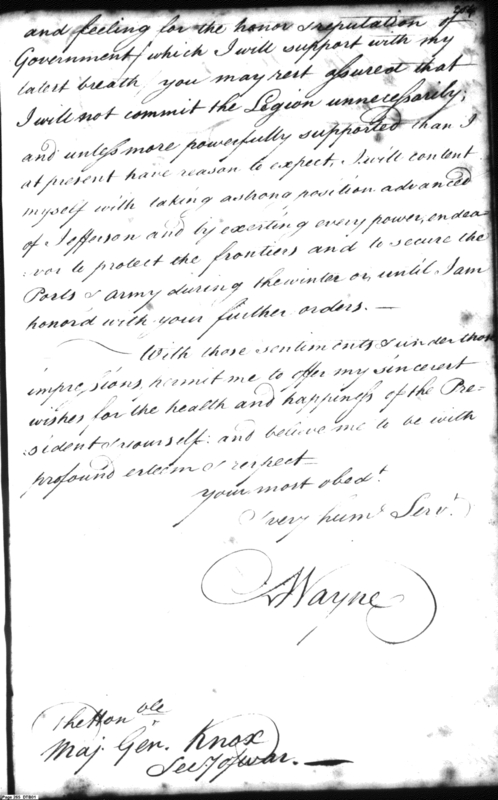 and feeling for the honor & reputation of
Government which I will support with my
latest breath you may rest assured that
I will not commit the Legion unnecessarily;
and unless more powerfully supported than I
at present have reason to expect, I will content
myself with taking a strong position advanced
of Jefferson and by exerting every power, endea-
vor to protect the frontiers and to secure the
Posts & army during the winter or until I am
honor'd with your further orders.—
With those sentiments & under those
impressions, permit me to offer my sincerest
wishes for the health and happiness of the Pre-
sident & yourself: and believe me to be with
profound esteem & respect—
your most obedt.
& very humb Servt.
A Wayne
The Honble
Maj. Gen. Knox
Secy of war.—